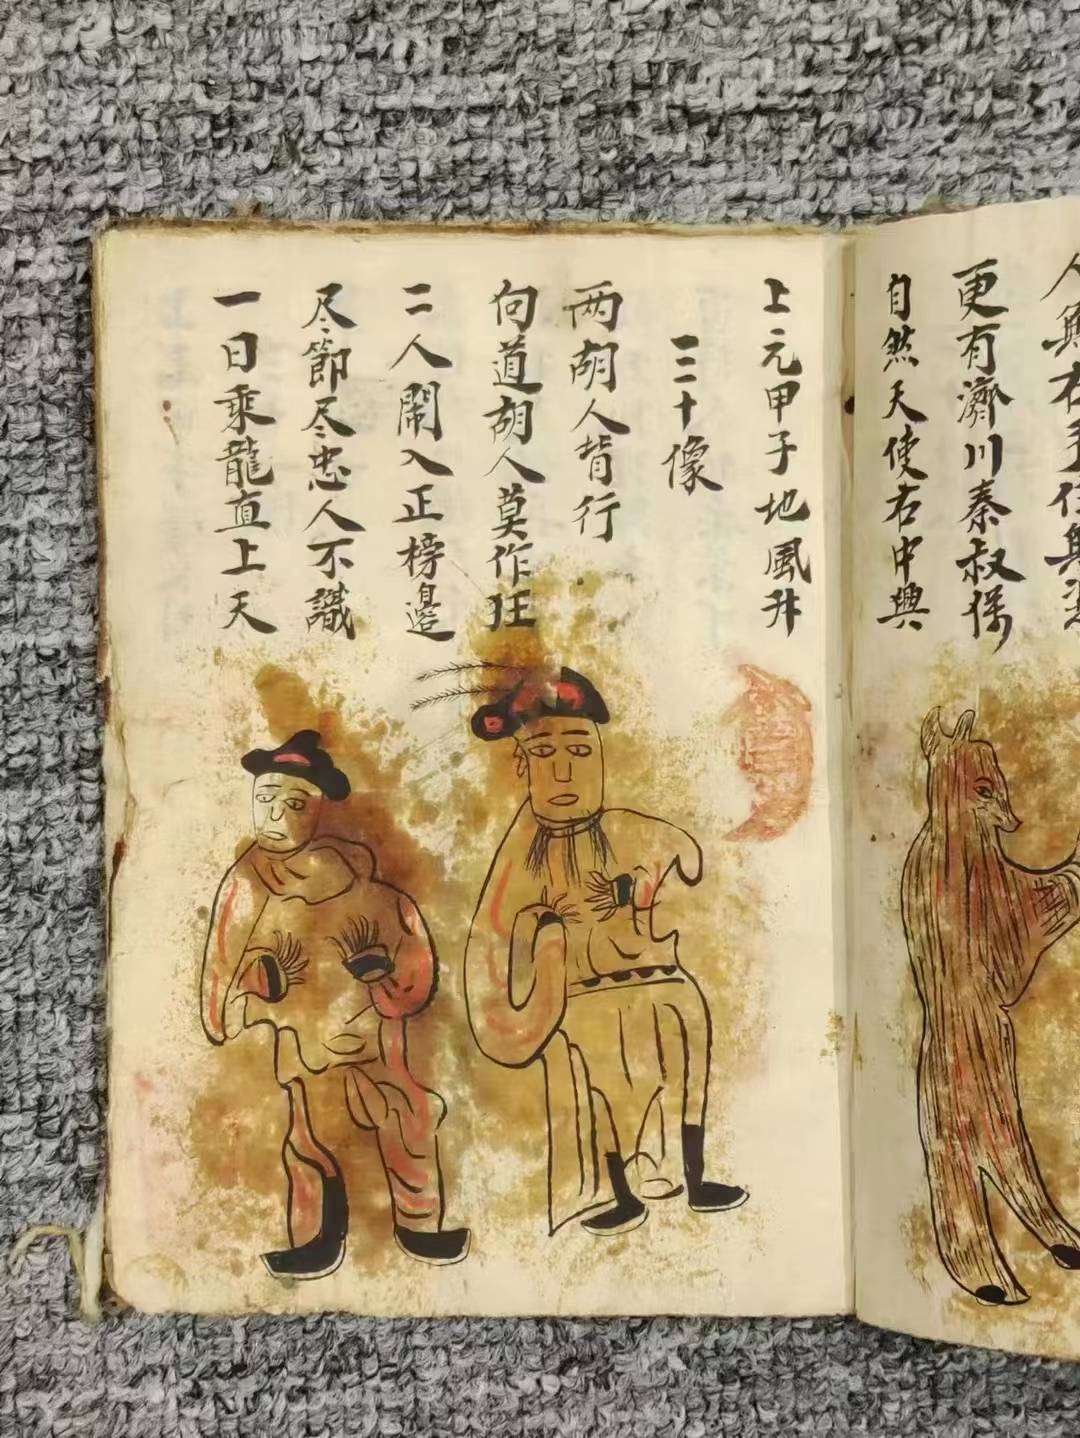 更有濟川秦叔保
自然天使右中興
上元甲子地風升
三十像
两胡人背行
向道胡人莫作狂
二人鬧入正榜邊
尽節尽忠人不識
一日乘龍直上天